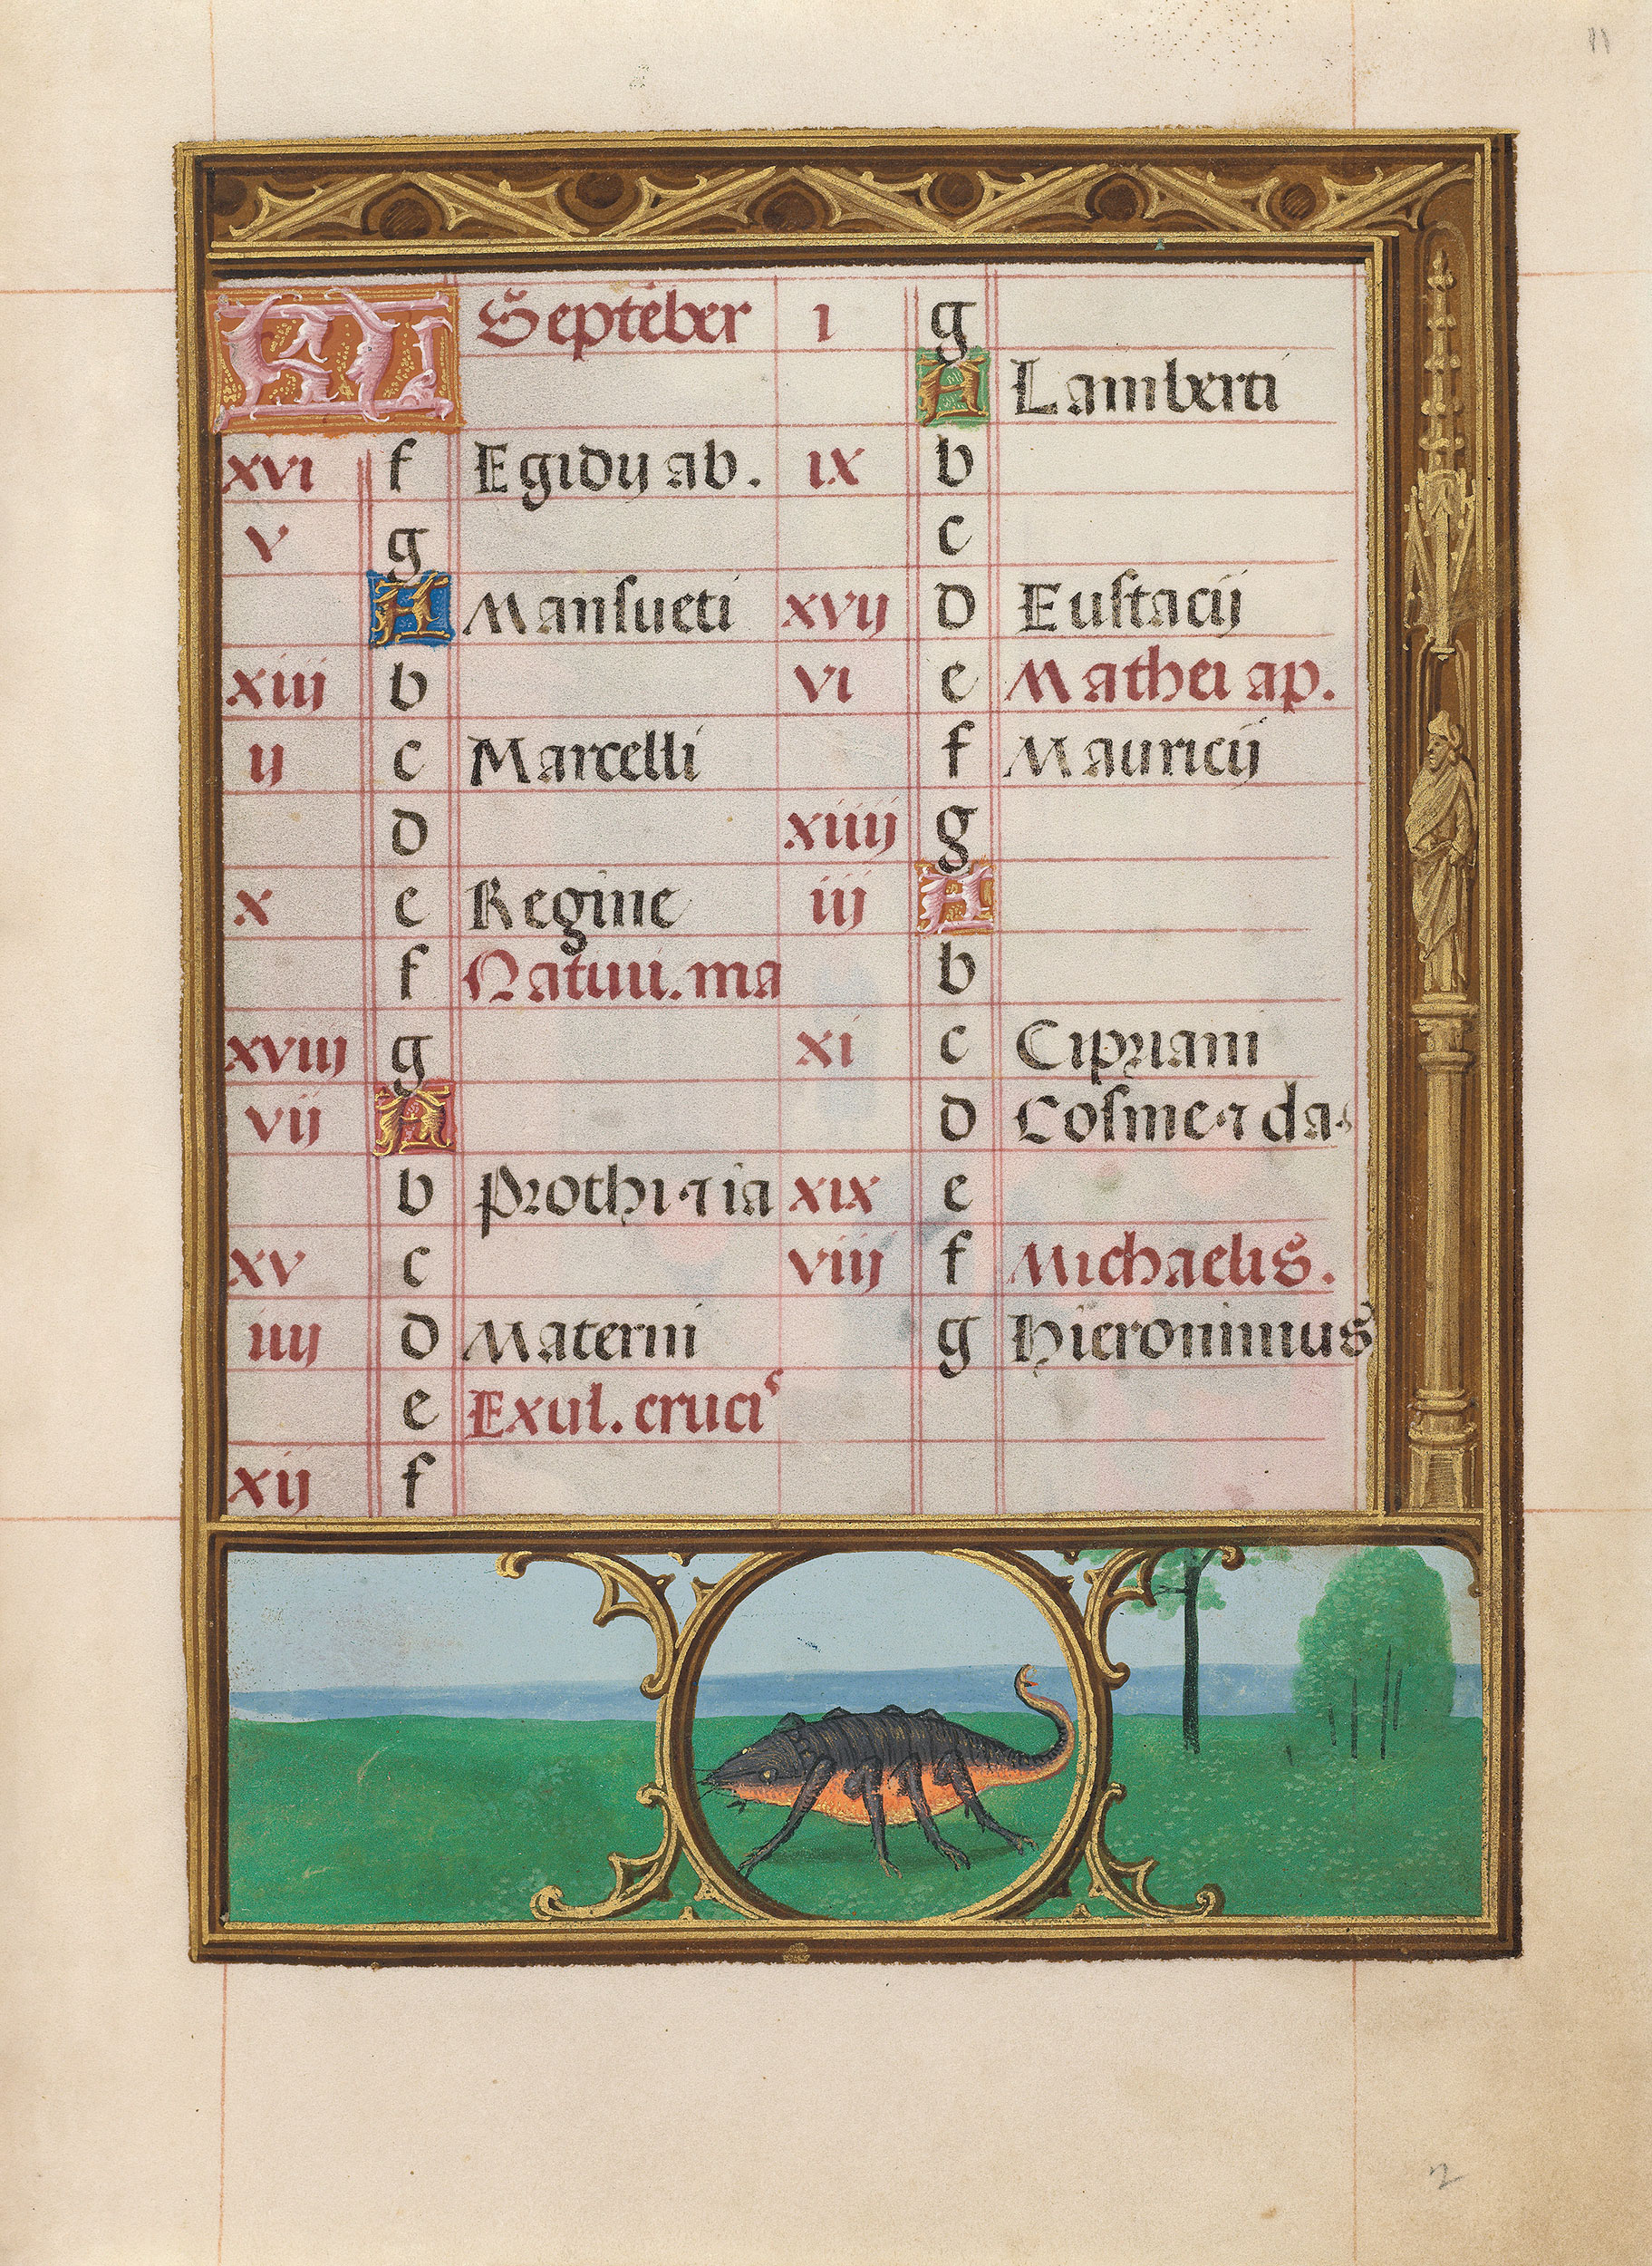 11
KL Septēber
xvi f Egidij ab.
v g
A Mansueti
xiij b
ij c Marcelli
d
x e Regine
f Natiui. ma
xviij g
vij A
b Prothi ⁊ ia
xv c
iiij d Materni
e Exul. crucis
xij f
i g
A Lamberti
ix b
c
xvij d Eustacij
vi e Mathei ap.
f Mauricij
xiiij g
iij A
b
xi c Cipriani
d Cosme ⁊ da
xix e
viij f Michaelis.
g Hieronimus
2